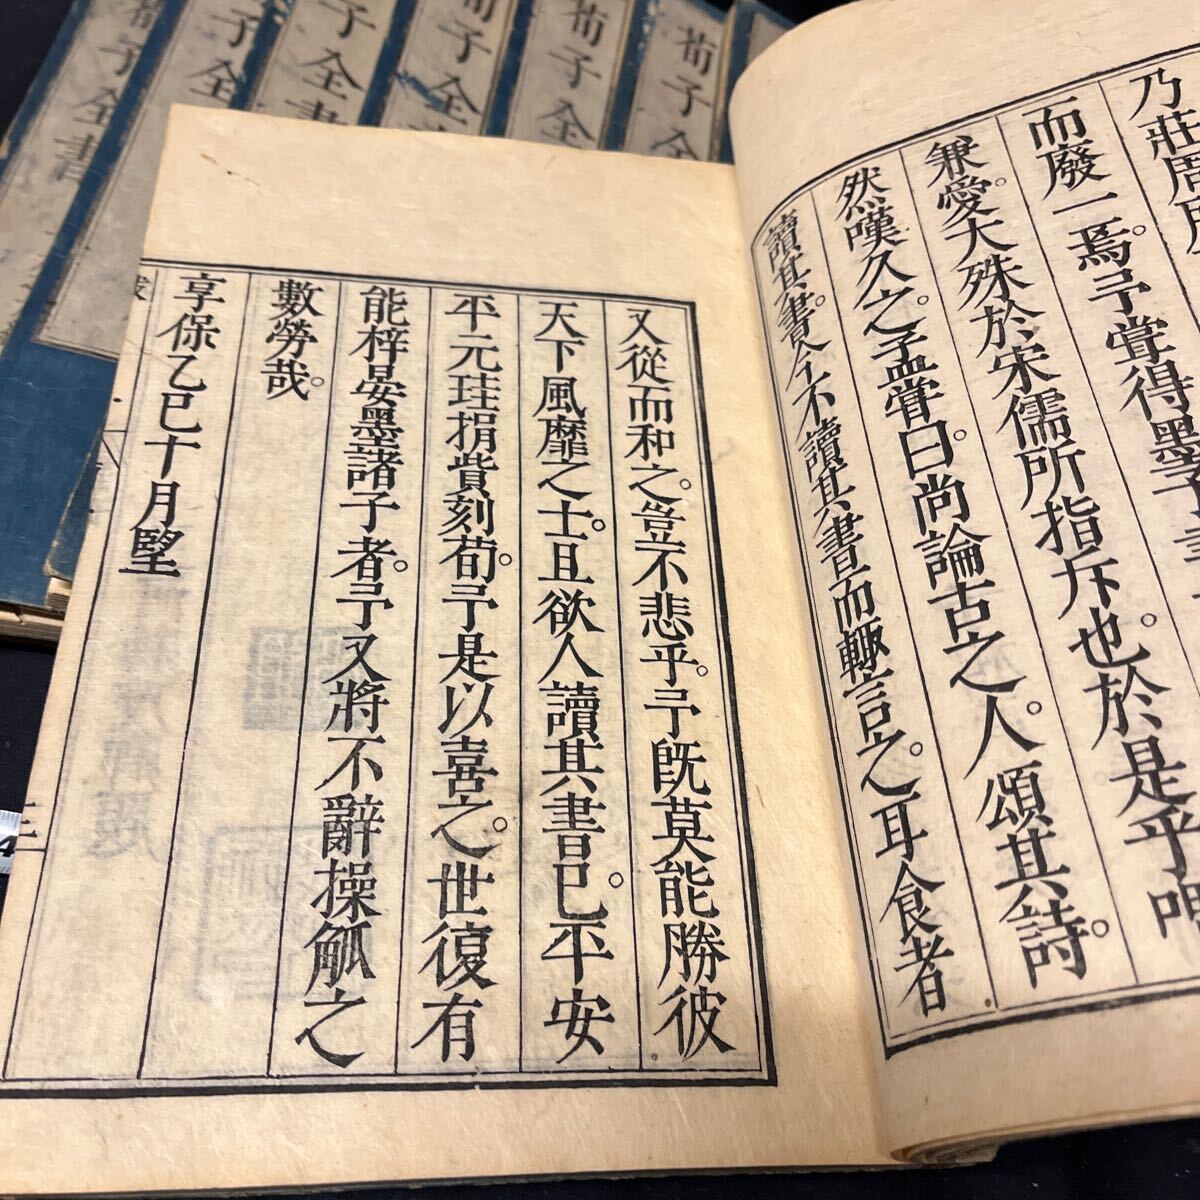 乃莊周
而廢一焉。予嘗得墨子
兼愛。大殊於宋儒所指斥也。於是乎
然嘆久之。孟嘗曰。尚論古之人。頌其詩。
讀其書。今不讀其書而輙言之。耳食者
又從而和之。豈不悲乎。予既莫能勝彼
天下風靡之士。且欲人讀其書已。平安
平元珪捐貲刻荀。予是以喜之。世復有
能梓晏墨諸子者。予又將不辭操觚之
數勞哉。
享保乙巳十月望
跋
三
荀子全
荀子全
荀子全
子全
子全書
子全
荀子全書
4